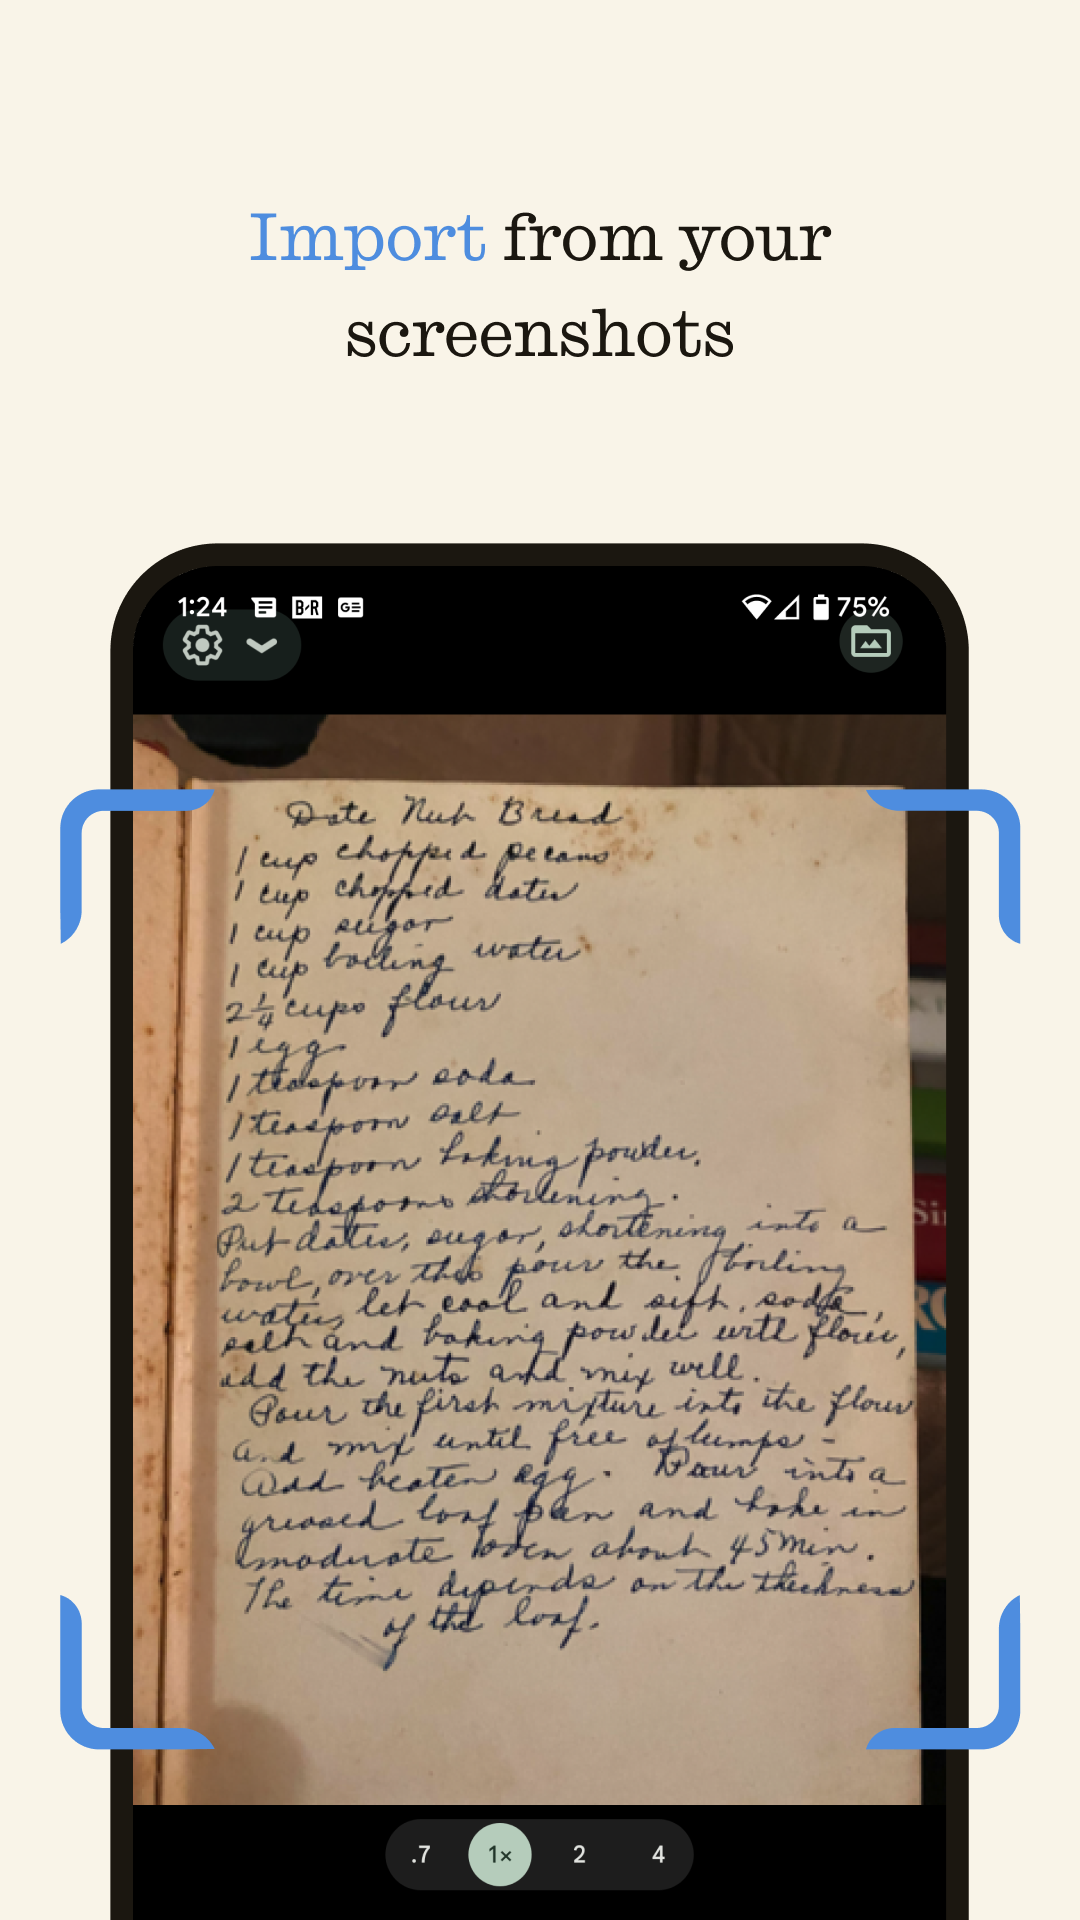 Import from your
screenshots
1:24 B-R GE 75%
Date Nut Bread
1 cup chopped pecans
1 cup chopped dates
1 cup sugar
1 cup boiling water
2 1/4 cups flour
1 egg
1 teaspoon soda
1 teaspoon salt
1 teaspoon baking powder.
2 teaspoons shortening.
Put dates, sugar, shortening into a
bowl, over this pour the boiling
water, let cool and sift, soda,
salt and baking powder with flour,
add the nuts and mix well.
Pour the first mixture into the flour
and mix until free of lumps -
Add beaten egg. Pour into a
greased loaf pan and bake in
moderate oven about 45 min.
The time depends on the thickness
of the loaf.
Si
.7 1× 2 4